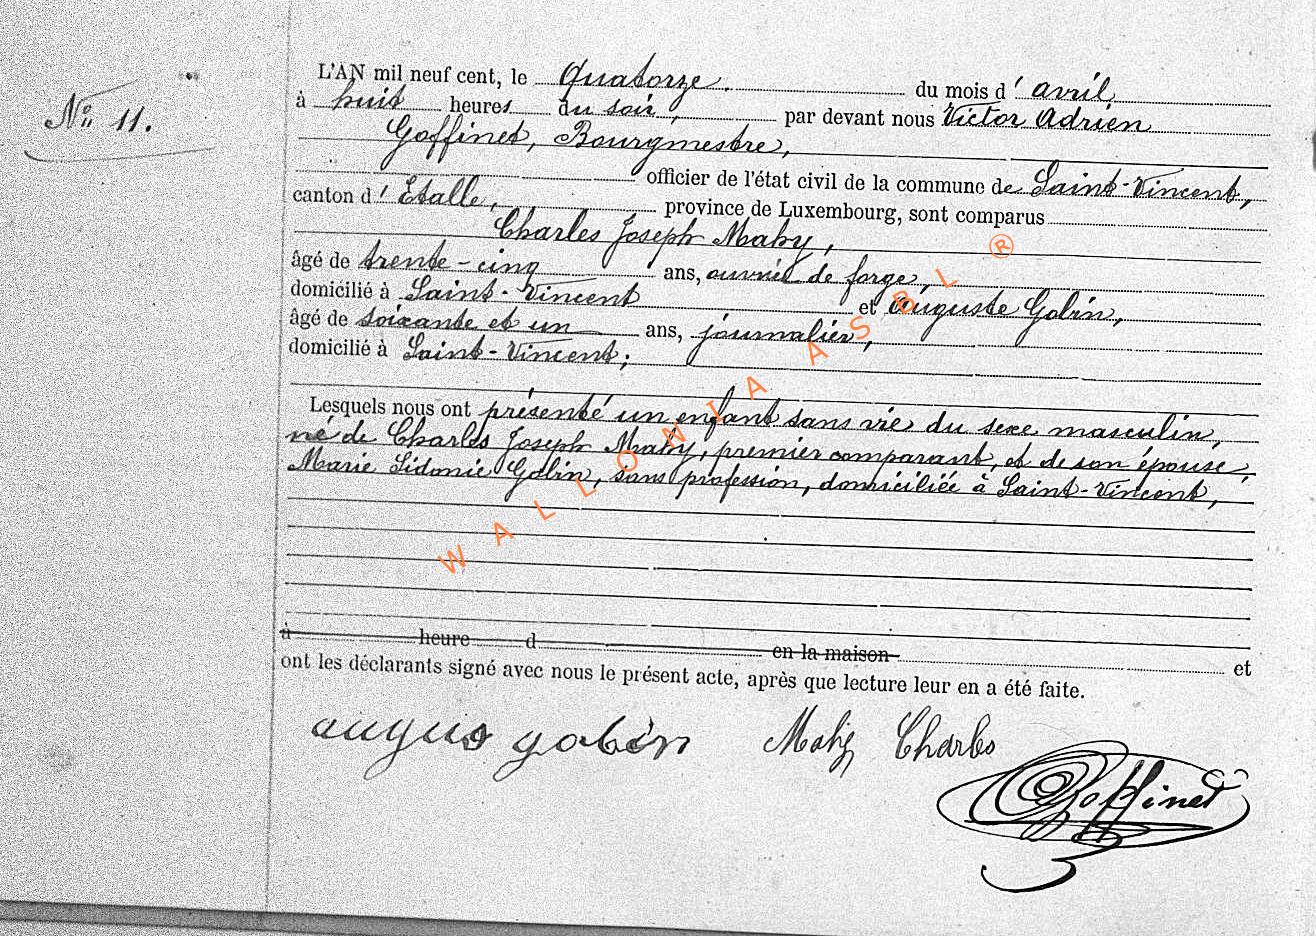 N° 11.
L'AN mil neuf cent, le Quatorze. du mois d' avril
à huit heures du soir, par devant nous Victor Adrien
Goffinet, Bourgmestre,
officier de l'état civil de la commune de Saint-Vincent,
canton d' Etalle, province de Luxembourg, sont comparus
Charles Joseph Mahy,
âgé de trente-cinq ans, ouvrier de forge,
domicilié à Saint-Vincent et Auguste Gobin,
âgé de soixante et un ans, journalier,
domicilié à Saint-Vincent;
Lesquels nous ont présenté un enfant sans vie du sexe masculin,
né de Charles Joseph Mahy, premier comparant, et de son épouse,
Marie Sidonie Gobin, sans profession, domiciliée à Saint-Vincent,
à heure d en la maison et
ont les déclarants signé avec nous le présent acte, après que lecture leur en a été faite.
augus gobin Mahy Charles
Goffinet
WALLONIA ASBL ®